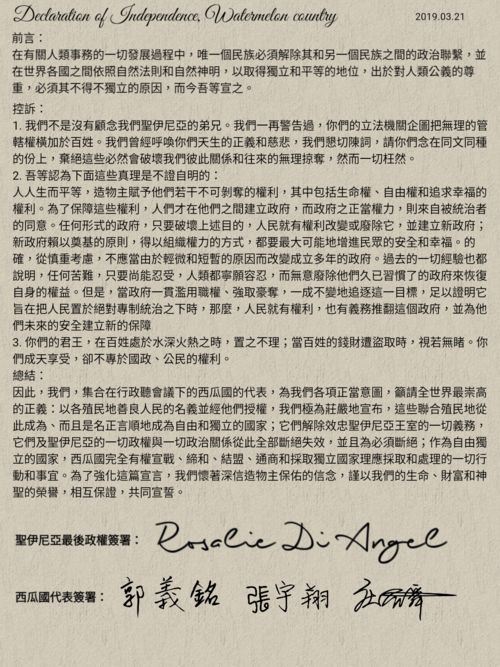 Declaration of Independence, Watermelon country
2019.03.21
前言：
在有關人類事務的一切發展過程中，唯一個民族必須解除其和另一個民族之間的政治聯繫，並
在世界各國之間依照自然法則和自然神明，以取得獨立和平等的地位，出於對人類公義的尊
重，必須其不得不獨立的原因，而今吾等宣之。
控訴：
1. 我們不是沒有顧念我們聖伊尼亞的弟兄。我們一再警告過，你們的立法機關企圖把無理的管
轄權橫加於百姓。我們曾經呼喚你們天生的正義和慈悲，我們懇切陳詞，請你們念在同文同種
的份上，棄絕這些必然會破壞我們彼此關係和往來的無理掠奪，然而一切枉然。
2. 吾等認為下面這些真理是不證自明的：
人人生而平等，造物主賦予他們若干不可剝奪的權利，其中包括生命權、自由權和追求幸福的
權利。為了保障這些權利，人們才在他們之間建立政府，而政府之正當權力，則來自被統治者
的同意。任何形式的政府，只要破壞上述目的，人民就有權利改變或廢除它，並建立新政府；
新政府賴以奠基的原則，得以組織權力的方式，都要最大可能地增進民眾的安全和幸福。的
確，從慎重考慮，不應當由於輕微和短暫的原因而改變成立多年的政府。過去的一切經驗也都
說明，任何苦難，只要尚能忍受，人類都寧願容忍，而無意廢除他們久已習慣了的政府來恢復
自身的權益。但是，當政府一貫濫用職權、強取豪奪，一成不變地追逐這一目標，足以證明它
旨在把人民置於絕對專制統治之下時，那麼，人民就有權利，也有義務推翻這個政府，並為他
們未來的安全建立新的保障
3. 你們的君王，在百姓處於水深火熱之時，置之不理；當百姓的錢財遭盜取時，視若無睹。你
們成天享受，卻不專於國政、公民的權利。
總結：
因此，我們，集合在行政聽會議下的西瓜國的代表，為我們各項正當意圖，籲請全世界最崇高
的正義：以各殖民地善良人民的名義並經他們授權，我們極為莊嚴地宣布，這些聯合殖民地從
此成為、而且是名正言順地成為自由和獨立的國家；它們解除效忠聖伊尼亞王室的一切義務，
它們及聖伊尼亞的一切政權與一切政治關係從此全部斷絕失效，並且為必須斷絕；作為自由獨
立的國家，西瓜國完全有權宣戰、締和、結盟、通商和採取獨立國家理應採取和處理的一切行
動和事宜。為了強化這篇宣言，我們懷著深信造物主保佑的信念，謹以我們的生命、財富和神
聖的榮譽，相互保證，共同宣誓。
聖伊尼亞最後政權簽署：Rosalie Di Angel
西瓜國代表簽署：郭義銘 張宇翔